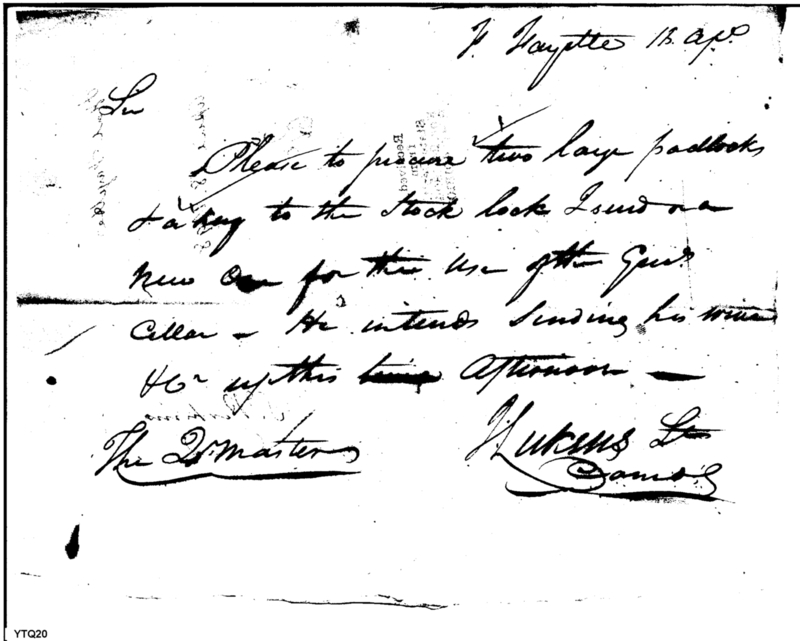 F. Fayette 13. Apl.
Sir
Please to procure two large padlocks
& a key to the stock lock I send or a
new One for the use of the Genls
Cellar – He intends sending his wine
&c up this Afternoon –
The Qr Master
J Lukens Lt
Comdg
YTQ20